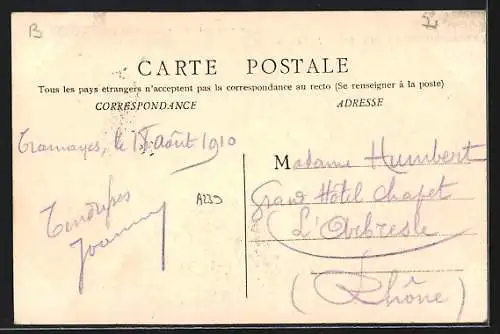 B
CARTE POSTALE
Tous les pays étrangers n'acceptent pas la correspondance au recto (Se renseigner à la poste)
CORRESPONDANCE
ADRESSE
Tramayes, le 18 août 1910
Tendresses
Joanny
A239
Madame Humbert
Grand Hôtel Chapet
L'Arbresle
(Rhône)